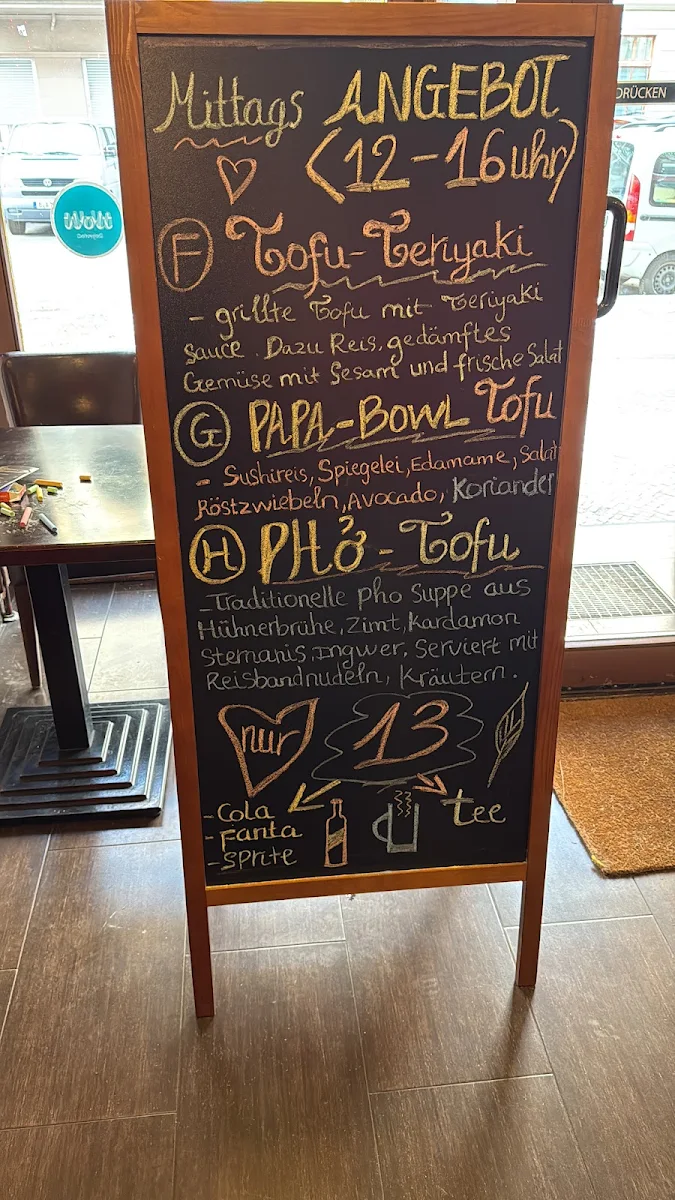 Mittags ANGEBOT
(12-16 uhr)
F Tofu-Teriyaki
- grillte Tofu mit Teriyaki
Sauce. Dazu Reis, gedämftes
Gemüse mit Sesam und frische Salat
G PAPA-BOWL Tofu
- Sushireis, Spiegelei, Edamame, Salat
Röstzwiebeln, Avocado, Koriander
H PHở-Tofu
- Traditionelle pho Suppe aus
Hühnerbrühe, Zimt, Kardamon
Sternanis, Ingwer, Serviert mit
Reisbandnudeln, Kräutern.
nur 13
- Cola
- Fanta
- Sprite
tee
Wolt
DRÜCKEN